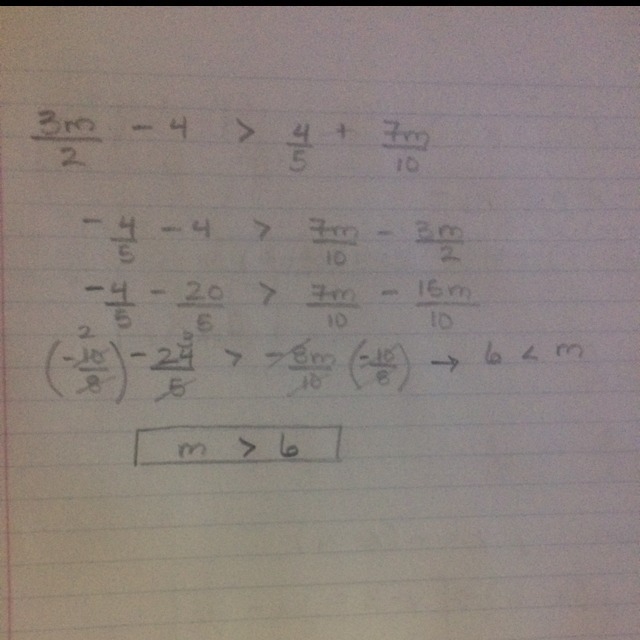 3m/2 - 4 > 4/5 + 7m/10
-4/5 - 4 > 7m/10 - 3m/2
-4/5 - 20/5 > 7m/10 - 15m/10
(-10/8) - 24/5 > -8m/10 (-10/8) → 6 < m
m > 6